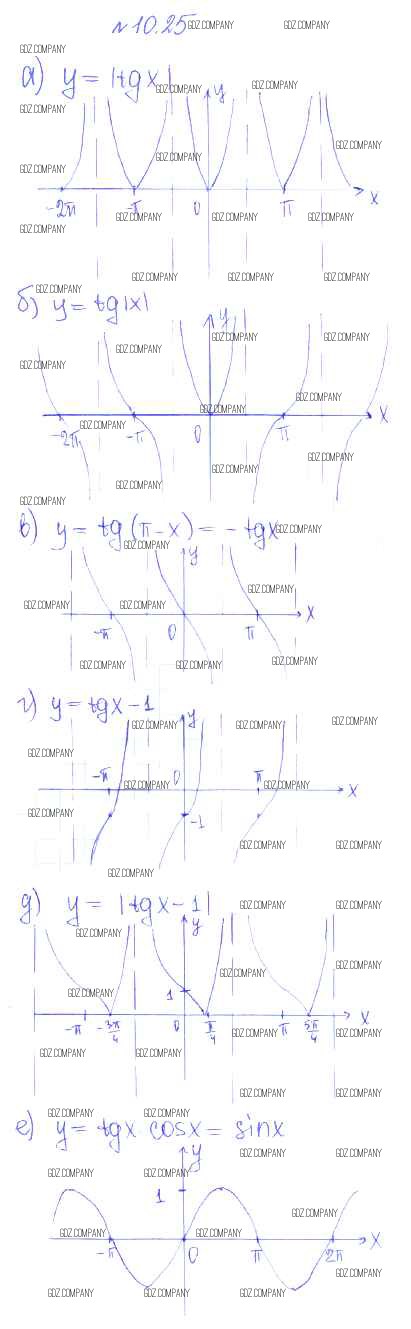 №10.25
а) y = |tgx|
y
-2π -π 0 π x
б) y = tg|x|
y
-2π -π 0 π x
в) y = tg(π-x) = -tgx
y
-π 0 π x
г) y = tgx-1
y
-π 0 π x
-1
д) y = |tgx-1|
y
1
-π -3π/4 0 π/4 π 5π/4 x
е) y = tgx cosx = sinx
y
1
-π 0 π 2π x
GDZ.COMPANY